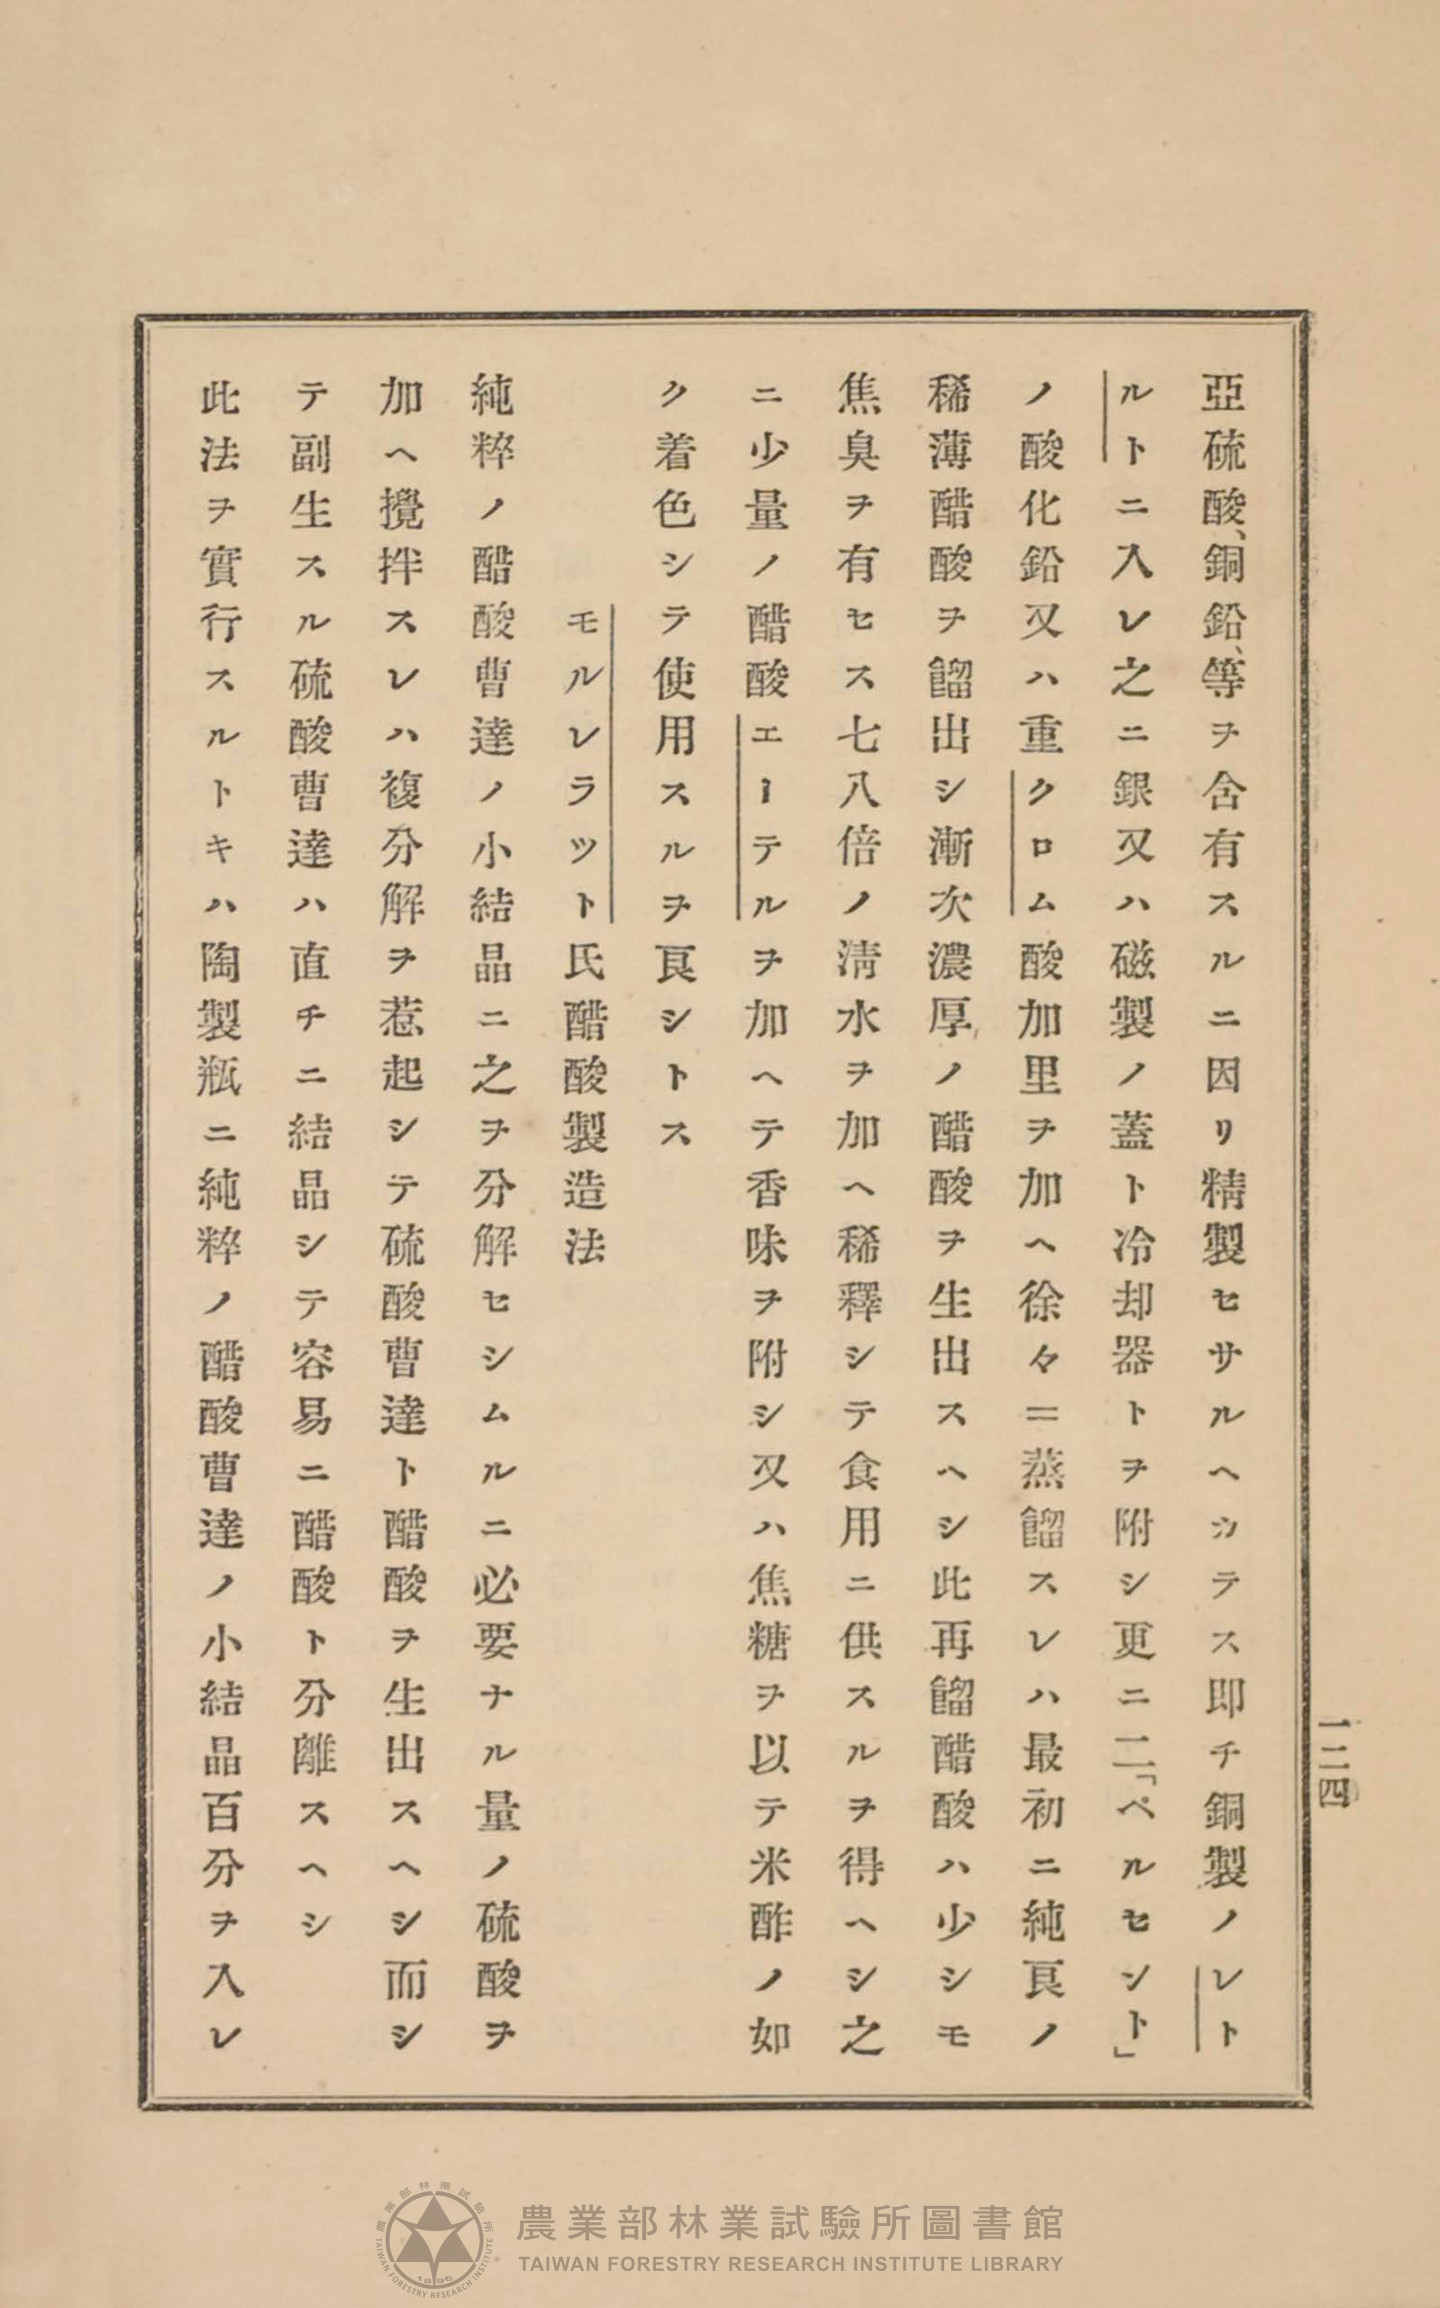 一二四
亞硫酸、銅鉛、等ヲ含有スルニ因リ精製セサルヘカラス即チ銅製ノレト
ルトニ入レ之ニ銀又ハ磁製ノ蓋ト冷却器トヲ附シ更ニ二「ペルセント」
ノ酸化鉛又ハ重クロム酸加里ヲ加ヘ徐々ニ蒸餾スレハ最初ニ純良ノ
稀薄醋酸ヲ餾出シ漸次濃厚ノ醋酸ヲ生出スヘシ此再餾醋酸ハ少シモ
焦臭ヲ有セス七八倍ノ淸水ヲ加ヘ稀釋シテ食用ニ供スルヲ得ヘシ之
ニ少量ノ醋酸エーテルヲ加ヘテ香味ヲ附シ又ハ焦糖ヲ以テ米酢ノ如
ク着色シテ使用スルヲ良シトス
モルレラツト氏醋酸製造法
純粹ノ醋酸曹達ノ小結晶ニ之ヲ分解セシムルニ必要ナル量ノ硫酸ヲ
加ヘ攪拌スレハ複分解ヲ惹起シテ硫酸曹達ト醋酸ヲ生出スヘシ而シ
テ副生スル硫酸曹達ハ直チニ結晶シテ容易ニ醋酸ト分離スヘシ
此法ヲ實行スルトキハ陶製瓶ニ純粹ノ醋酸曹達ノ小結晶百分ヲ入レ
農業部林業試驗所圖書館
TAIWAN FORESTRY RESEARCH INSTITUTE LIBRARY
農業部林業試驗所
TAIWAN FORESTRY RESEARCH INSTITUTE
1896